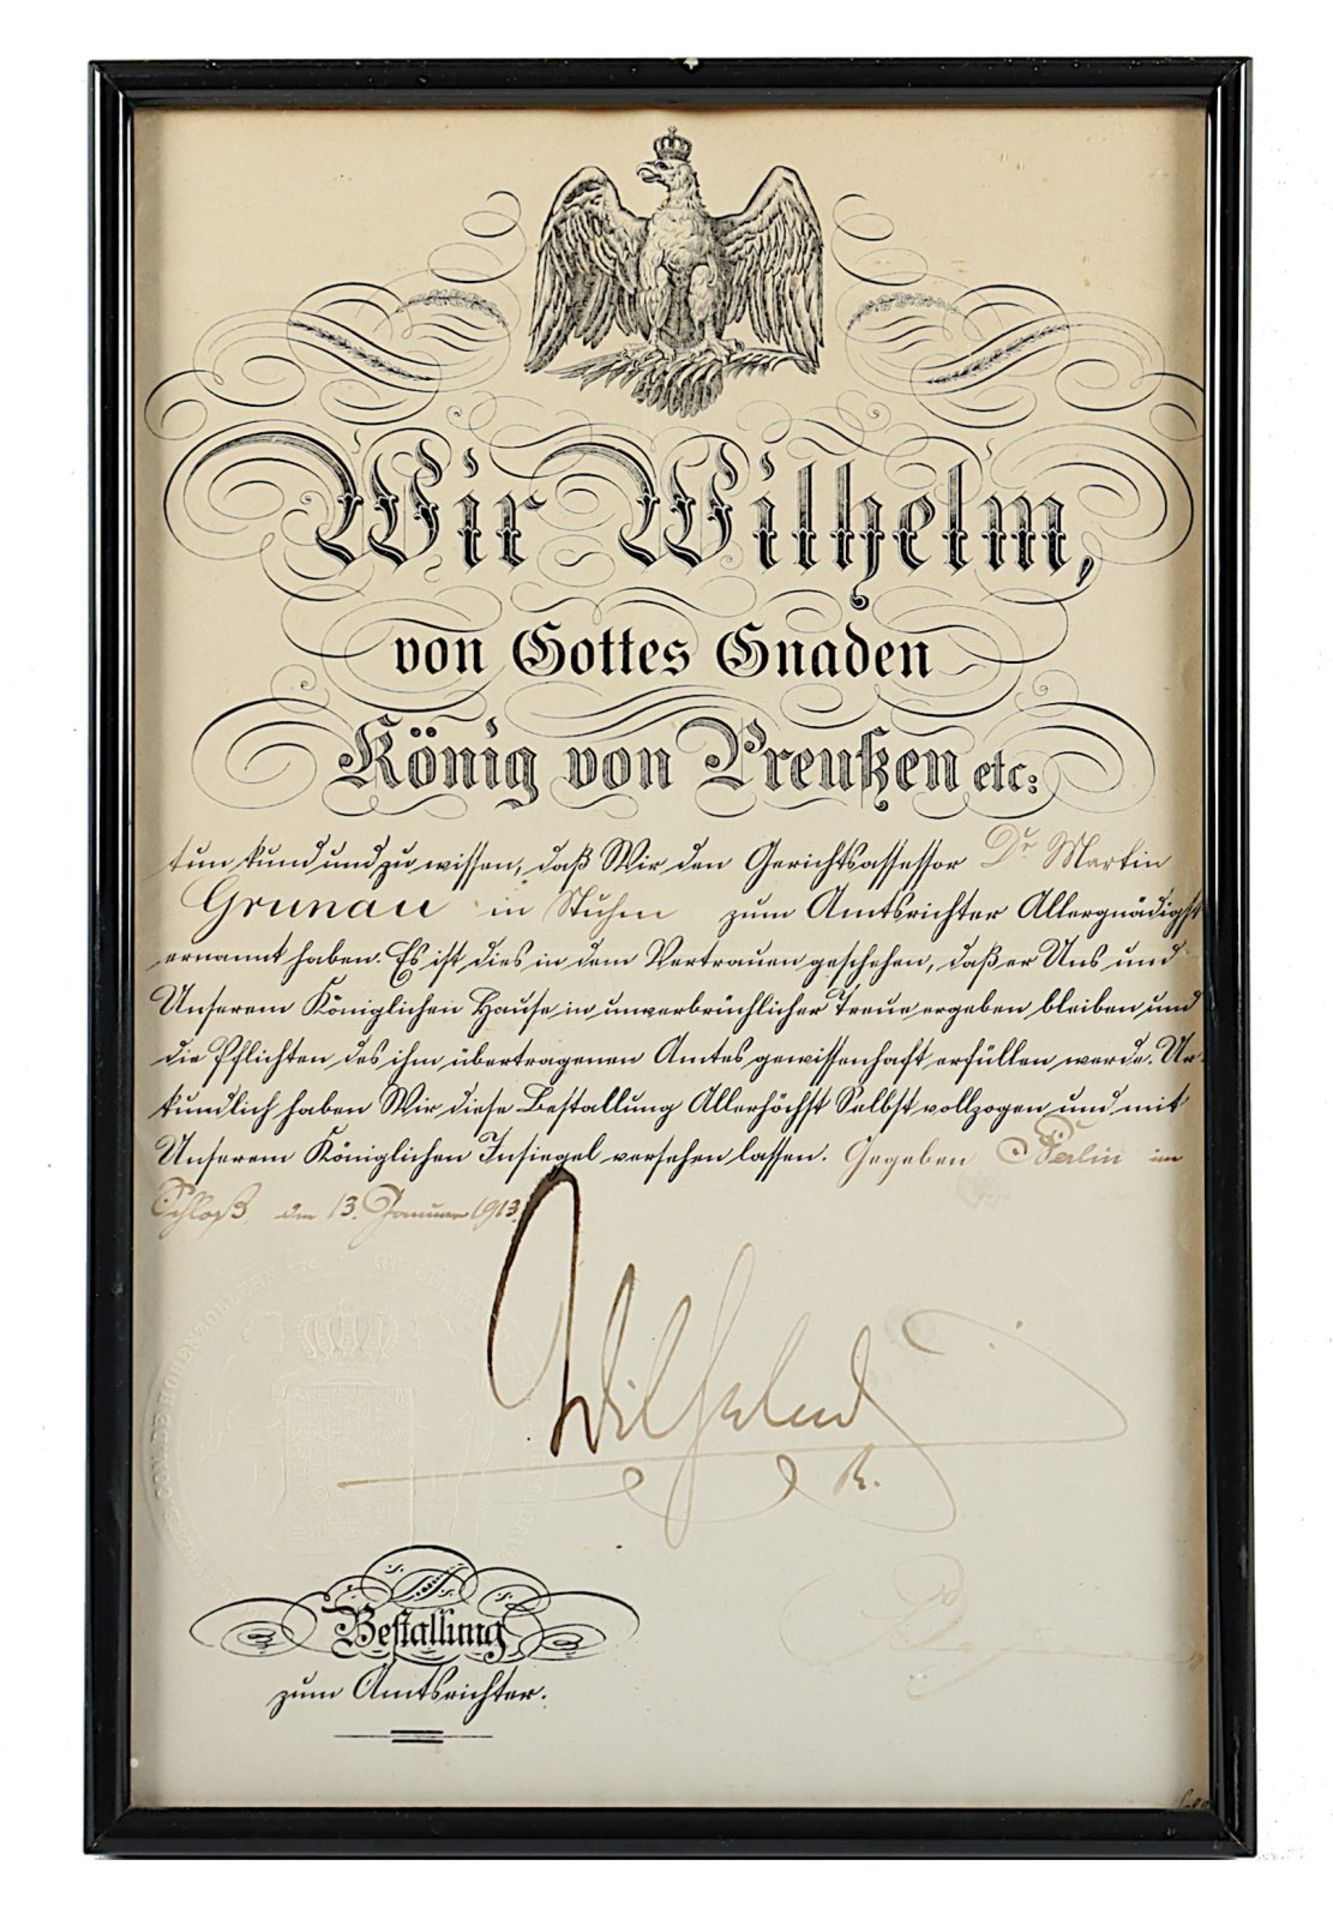 Wir Wilhelm,
von Gottes Gnaden
König von Preußen etc:
tun kund und zu wissen, daß Wir den Gerichtsassessor Dr Martin
Grunau in Stuhm zum Amtsrichter Allergnädigst
ernannt haben. Es ist dies in dem Vertrauen geschehen, daß er Uns und
Unserem Königlichen Hause in unverbrüchlicher Treue ergeben bleiben und
die Pflichten des ihm übertragenen Amtes gewissenhaft erfüllen werde. Ur-
kundlich haben Wir diese Bestallung Allerhöchst Selbst vollzogen und mit
Unserem Königlichen Insiegel versehen lassen. Gegeben Berlin im
Schloß, den 13. Januar 1913.
Wilhelm
R.
Bestallung
zum Amtsrichter.